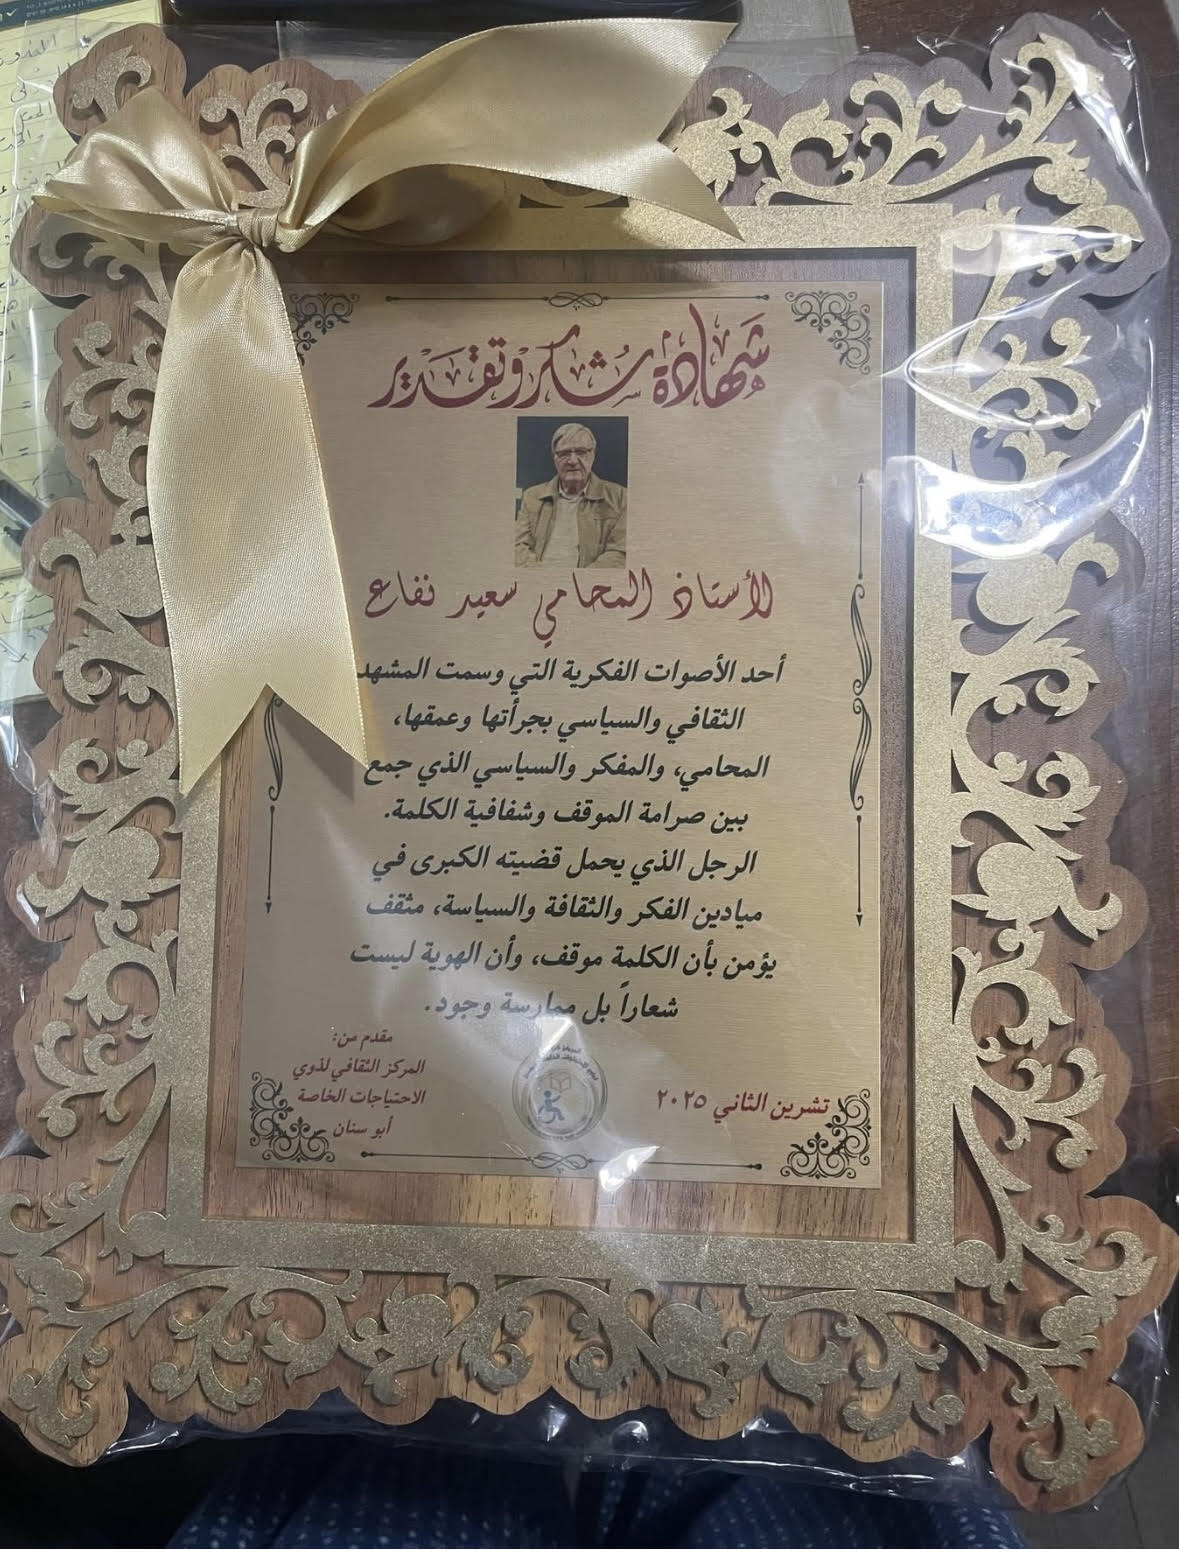 شهادة شكر وتقدير
الأستاذ المحامي سعيد نفاع
أحد الأصوات الفكرية التي وسمت المشهد
الثقافي والسياسي بجرأتها وعمقها،
المحامي، والمفكر والسياسي الذي جمع
بين صرامة الموقف وشفافية الكلمة.
الرجل الذي يحمل قضيته الكبرى في
ميادين الفكر والثقافة والسياسة، مثقف
يؤمن بأن الكلمة موقف، وأن الهوية ليست
شعاراً بل ممارسة وجود.
تشرين الثاني ٢٠٢٥
مقدم من:
المركز الثقافي لذوي
الاحتياجات الخاصة
أبو سنان